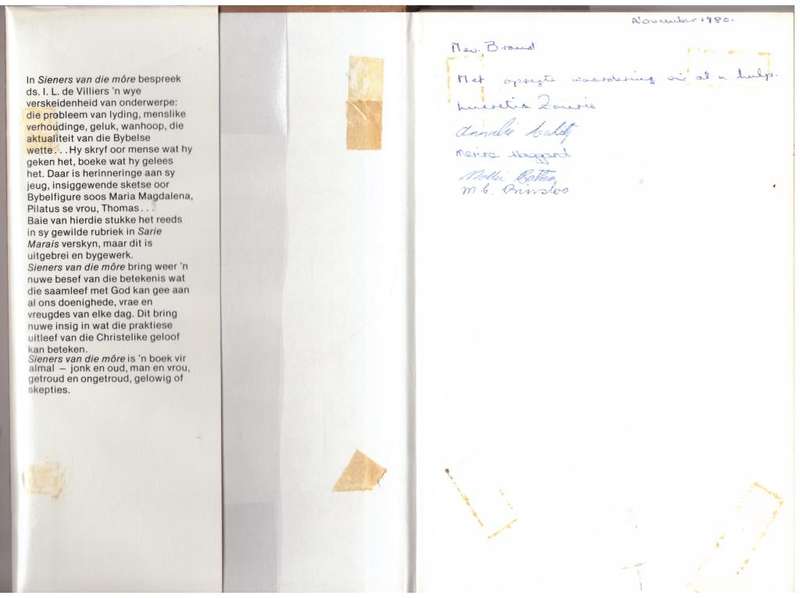 In Sieners van die môre bespreek
ds. I. L. de Villiers 'n wye
verskeidenheid van onderwerpe:
die probleem van lyding, menslike
verhoudinge, geluk, wanhoop, die
aktualiteit van die Bybelse
wette. . . Hy skryf oor mense wat hy
geken het, boeke wat hy gelees
het. Daar is herinneringe aan sy
jeug, insiggewende sketse oor
Bybelfigure soos Maria Magdalena,
Pilatus se vrou, Thomas. . .
Baie van hierdie stukke het reeds
in sy gewilde rubriek in Sarie
Marais verskyn, maar dit is
uitgebrei en bygewerk.
Sieners van die môre bring weer 'n
nuwe besef van die betekenis wat
die saamleef met God kan gee aan
al ons doenighede, vrae en
vreugdes van elke dag. Dit bring
nuwe insig in wat die praktiese
uitleef van die Christelike geloof
kan beteken.
Sieners van die môre is 'n boek vir
almal — jonk en oud, man en vrou,
getroud en ongetroud, gelowig of
skepties.
November 1980.
Mev. Brand
Met opregte waardering vir al u hulp.
Lucretia Lourie
Haggard
M. C. Prinsloo